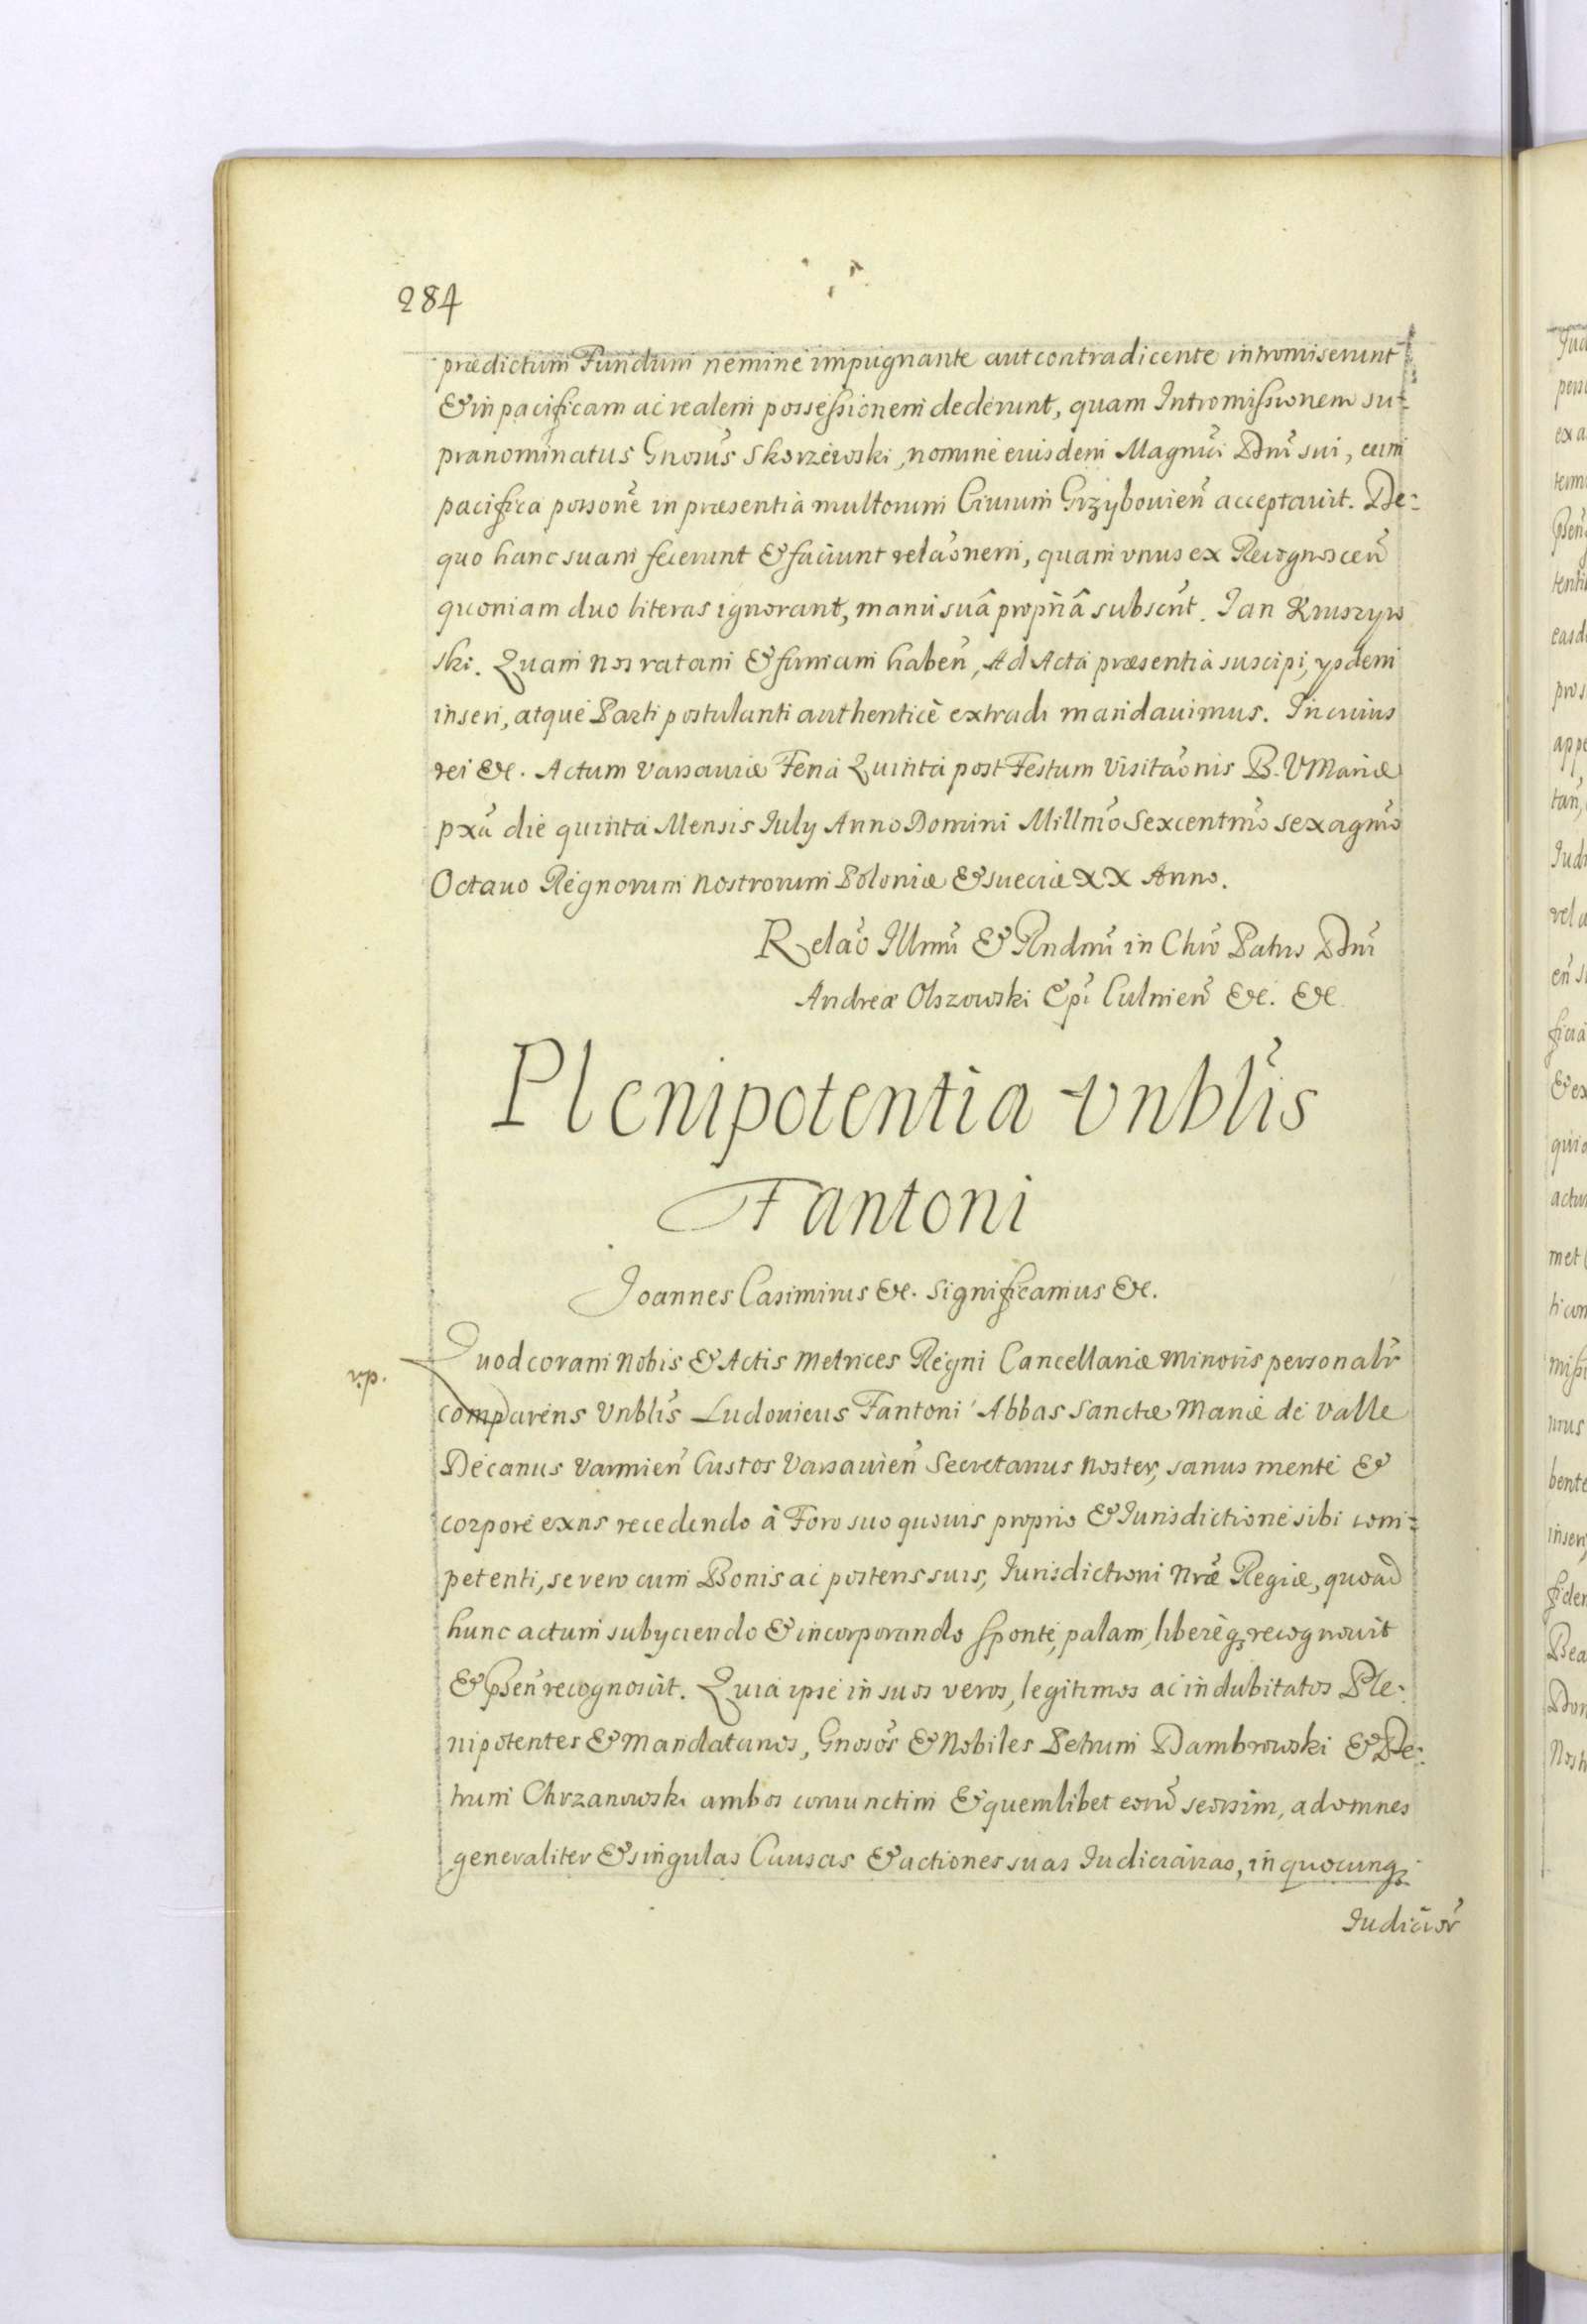 284
prædictum Fundum nemine impugnante aut contradicente intromiserunt
& in pacificam ac realem possessionem dederunt, quam Intromissionem su=
pranominatus Gnosus Skorzewski, nomine eiusdem Magnci Dni sui, cum
pacifica possone in præsentia multorum Civium Grzybovien acceptavit. De=
quo hanc suam fecerunt & faciunt relaonem, quam vnus ex Recognoscen
quoniam duo literas ignorant, manu suâ propriâ subscrit. Jan Kruszyw
ski. Quam nos ratam & firmam haben, Ad Acta præsentia suscipi, ysdem
inseri, atque Parti postulanti authenticè extradi mandauimus. In cuius
rei &c. Actum Varsaviæ Feria Quinta post Festum Visitaonis B. V Mariæ
pxa die quinta Mensis July Anno Domini Millmo Sexcentmo sexagmo
Octavo Regnorum nostrorum Poloniæ & sueciæ XX Anno.
Relao Illmi & Rndmi in Chro Patris Dni
Andreæ Olszowski Epi Culmien &c. &c
Plenipotentia Vnblis
Fantoni
Joannes Casimirus &c. significamus &c.
Quod coram nobis & Actis Metrices Regni Cancellariæ minoris personalr
comparens Vnblis Ludovicus Fantoni Abbas Sanctæ Mariæ de Valle
Decanus Varmien Custos Varsavien Secretarius noster, sanus mente &
corpore exns recedendo à Foro suo quovis proprio & Iurisdictione sibi com=
petenti, se vero cum Bonis ac posteris suis, Iurisdictioni nræ Regiæ, quoad
hunc actum subyciendo & incorporando sponte, palam, libereq; recognovit
& psen recognoscit. Quia ipse in suos veros, legitimos ac indubitatos Ple=
nipotentes & Mandatarios, Gnosos & Nobiles Petrum Dambrowski & Pe=
trum Chrzanowski ambos coniunctim & quemlibet eoru seorsim, ad omnes
generaliter & singulas Causas & actiones suas Iudiciarias, in quocunq;
Iudicior